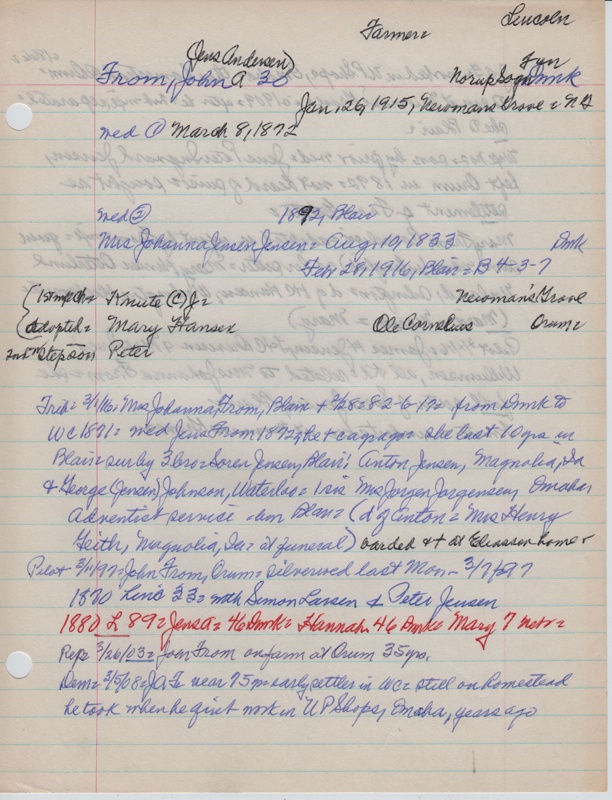 Lincoln
Farmer=
(Jens Andersen)
From, John A 30 Norup Sogn Fyn Dmk
Jan, 26, 1915, Newmans Grove =
wed ① March 8, 1872
wed ② 1892, Blair
Mrs Johanna Jensen Jensen = Aug, 10, 1833 Dmk
Feb, 28, 1916, Blair = B 4-3-7
(1st m ch = Knute (C) J = Newman's Grove
(adopted = Mary Hansen Ole Cornelius Orum =
2nd m Stepson Peter
Trib = 3/1/16 = Mrs Johanna From, Blair + 2/28 = 82-6-17 = from Dmk to
WC 1871 = wed Jens From 1872, he + ago = she last 10 yrs in
Blair = surby 3 bro = Soren Jensen, Blair; Anton Jensen, Magnolia, Ia
& George (Jensen) Johnson, Waterloo = 1 sis Mrs Jorgen Jorgensen, Omaha =
Adventist service - bur Blair = (d of Anton = Mrs Henry
Keith, Magnolia, Ia = at funeral) boarded & + at Eliassen home =
Pilot 3/11/97 = John From, Orum = silverwed last Mon - 3/7/97
1870 Linc 33 = with Simon Larsen & Peter Jensen
1880 L 89 = Jens A = 46 Dmk = Hannah 46 Dmk = Mary 7 nebr =
Rep = 3/26/03 = John From on farm at Orum 35 yrs.
Dem = 3/5/08 = JA Fr near 75 = early settler in WC = still on homestead
he took when he quit work in UP Shops, Omaha, years ago